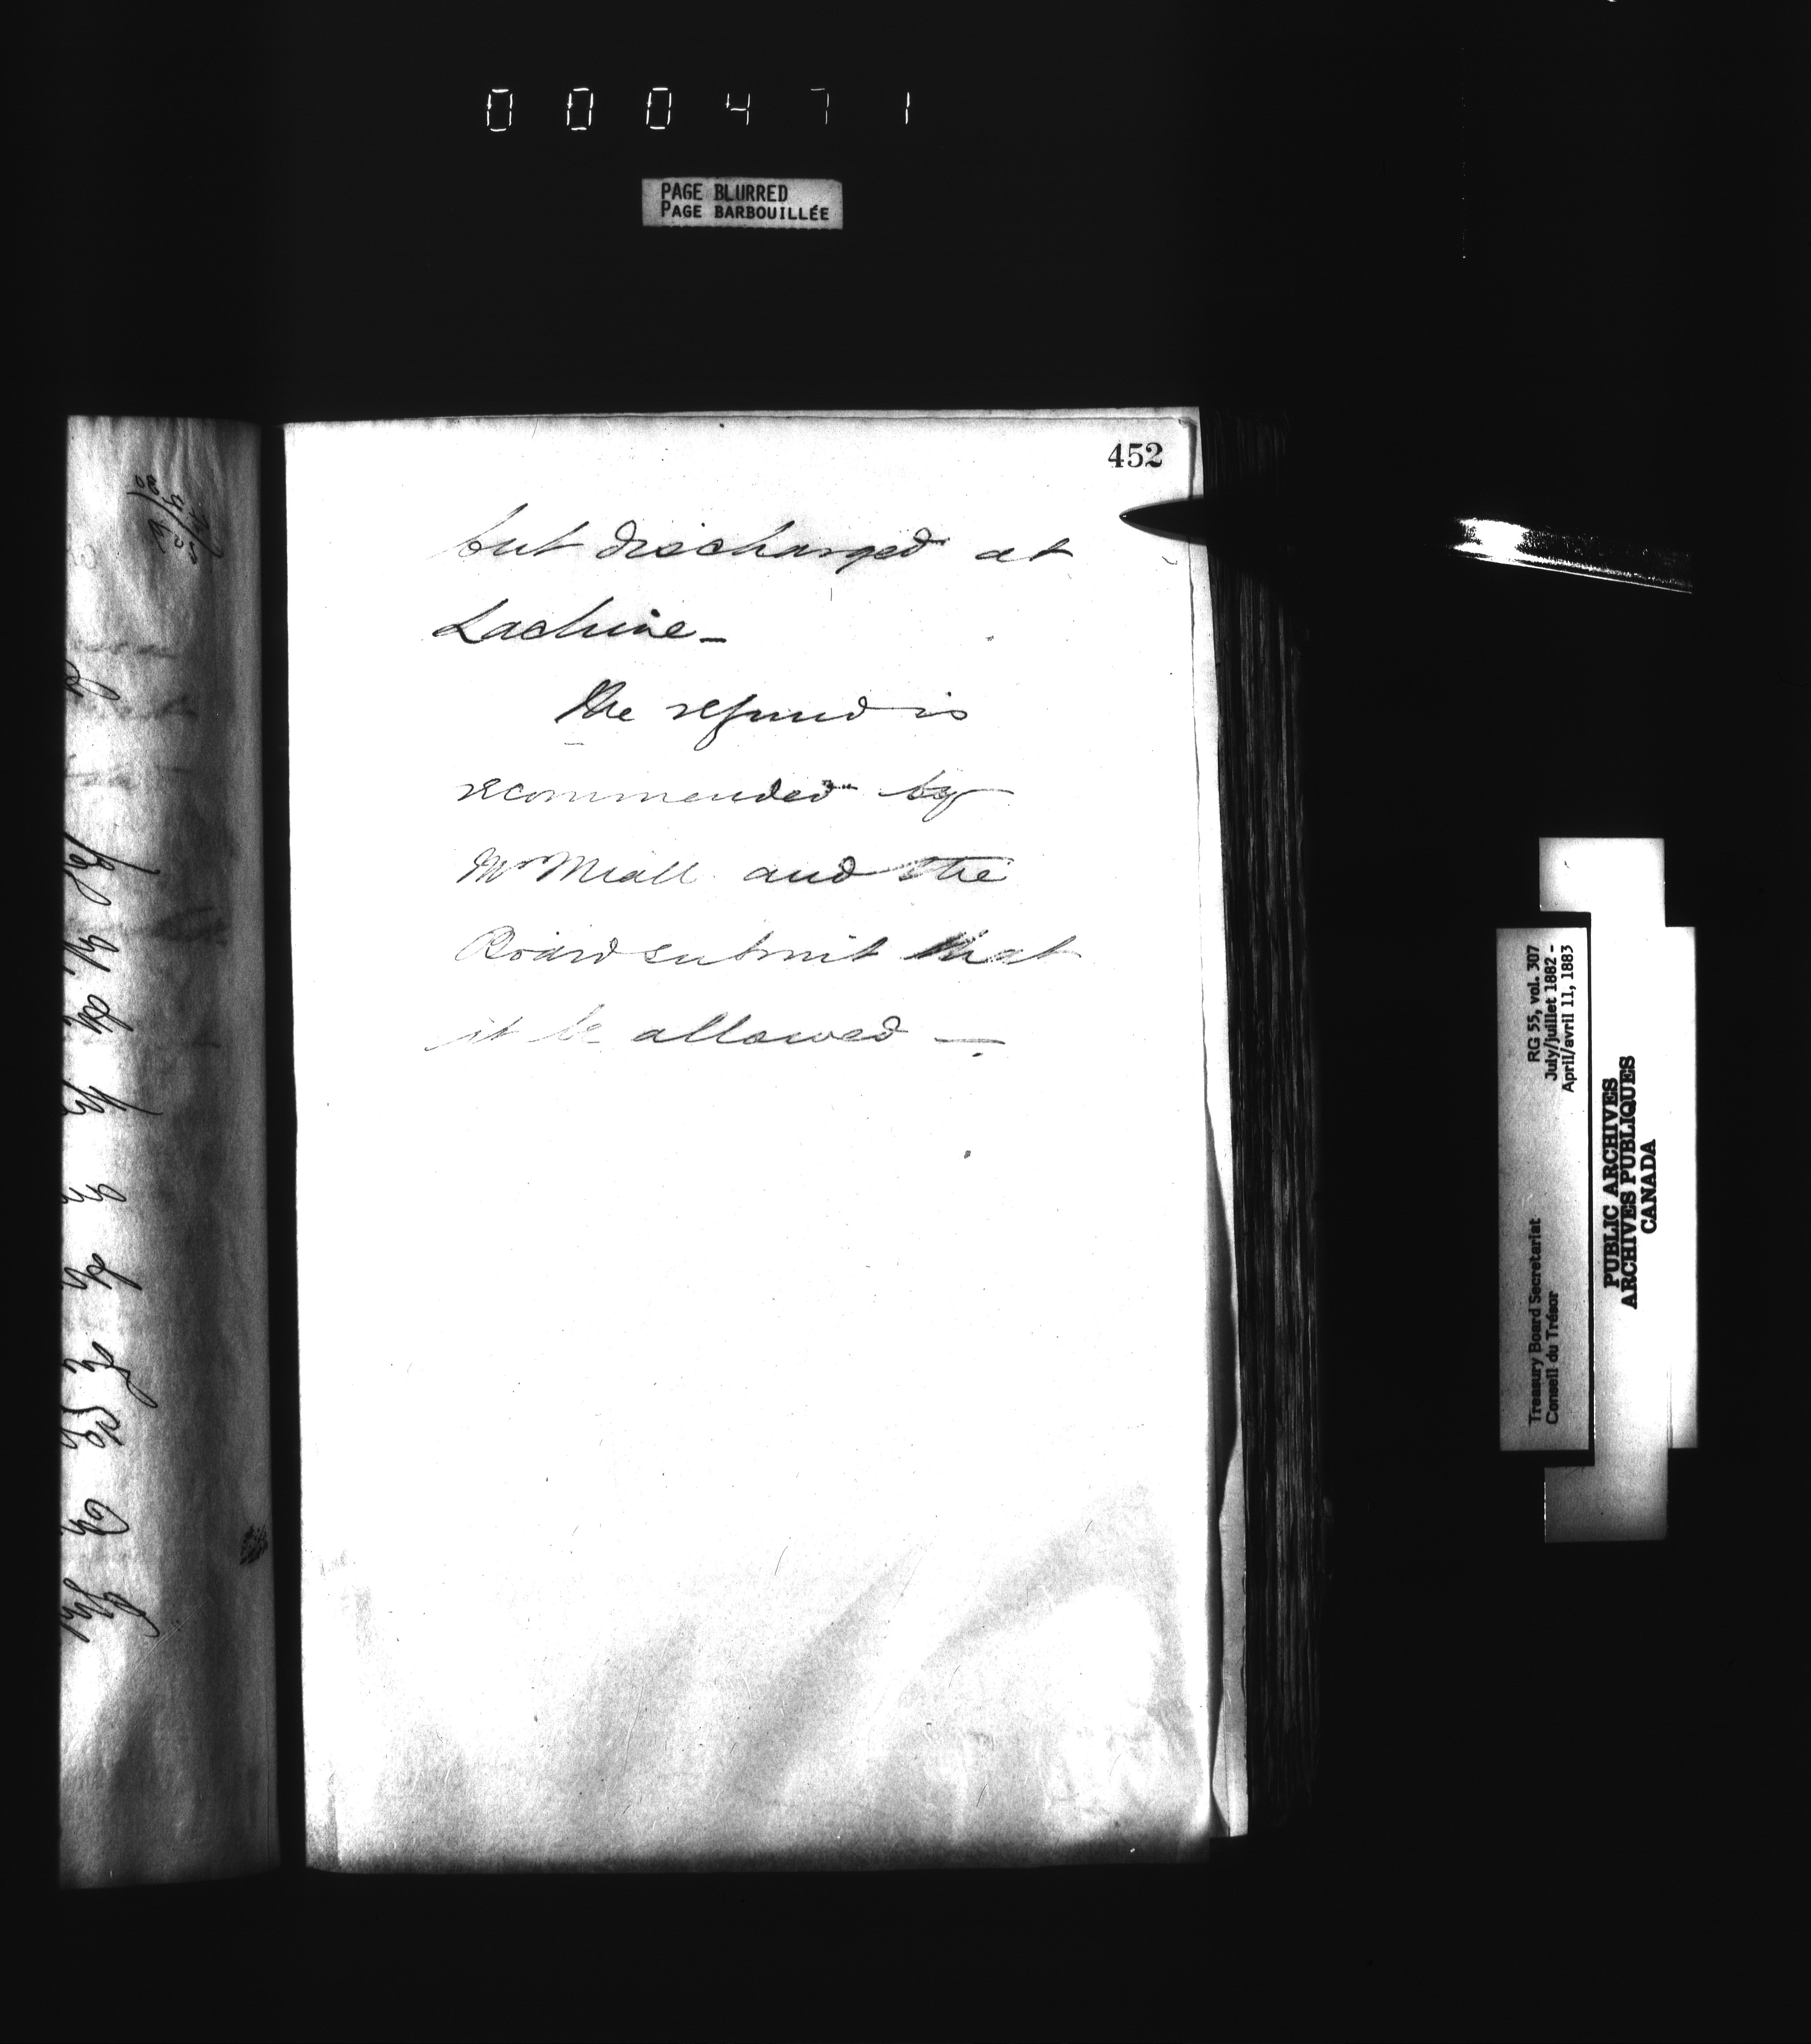 000471
PAGE BLURRED
PAGE BARBOUILLÉE
452
but discharged at
Lachine_
The refund is
recommended by
Mr Miall and the
Board submit that
it be allowed —.
RG 55, vol. 307
July/juillet 1882 -
April/avril 11, 1883
Treasury Board Secretariat
Conseil du Trésor
PUBLIC ARCHIVES
ARCHIVES PUBLIQUES
CANADA